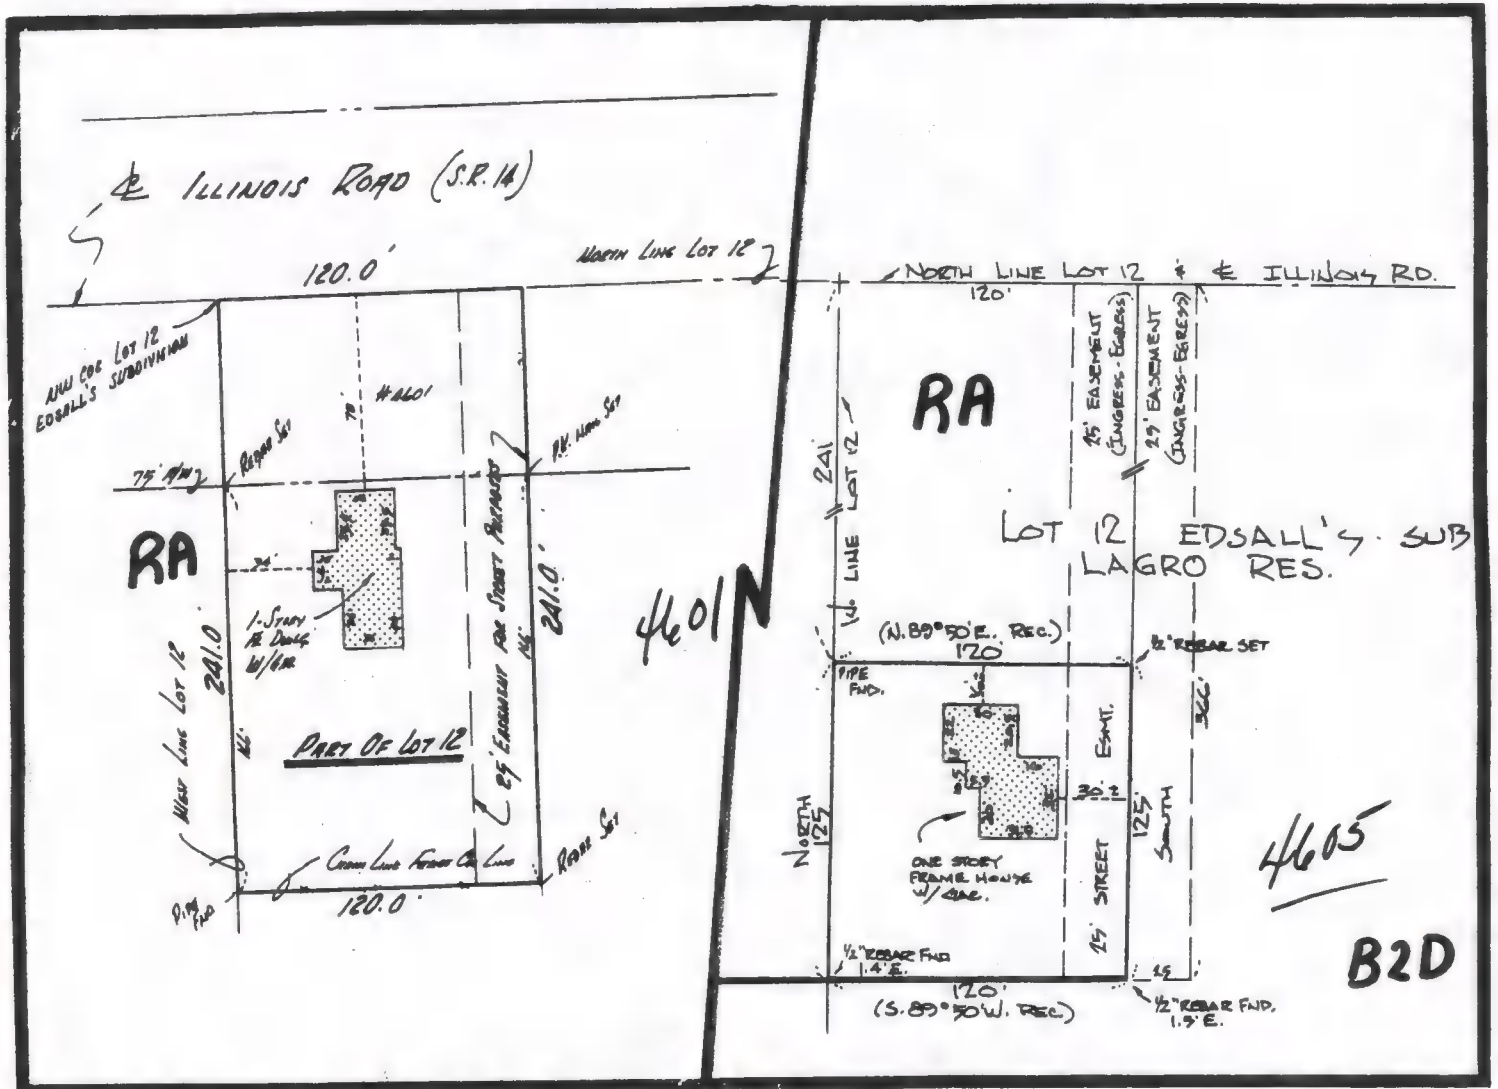 ℄ ILLINOIS ROAD (S.R. 14)
NORTH LINE LOT 12
120.0'
NW COR LOT 12
EDSALL'S SUBDIVISION
#4601
78'
REBAR SET
P.K. NAIL SET
75' R/W
RA
34'
1-STORY
W/GAR.
WEST LINE LOT 12
241.0
166'
PART OF LOT 12
25' EASEMENT FOR STREET PURPOSES
241.0'
166'
CHAIN LINK FENCE ON LINE
REBAR SET
PIPE
FND
120.0'
4601
N
NORTH LINE LOT 12 & ℄ ILLINOIS RD.
120'
25' EASEMENT
(INGRESS-EGRESS)
25' EASEMENT
(INGRESS-EGRESS)
RA
241'
W. LINE LOT 12
LOT 12 EDSALL'S SUB
LAGRO RES.
(N.89°50'E. REC.)
120'
1/2" REBAR SET
PIPE
FND.
366'
NORTH
125
30.2
125'
SOUTH
25' STREET ESMT.
ONE STORY
FRAME HOUSE
W/ GAR.
4605
B2D
1/2" REBAR FND
.4' E.
120'
(S.89°50'W. REC.)
25
1/2" REBAR FND.
1.5' E.